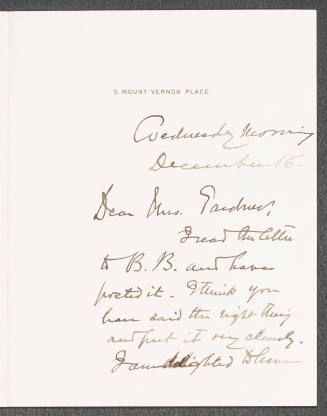 5 MOUNT VERNON PLACE.
Wednesday Morning
December 16.
Dear Mrs. Gardner,
I read the letter
to B. B. and have
posted it. I think you
have said the right thing
and put it very clearly.
I am delighted to have